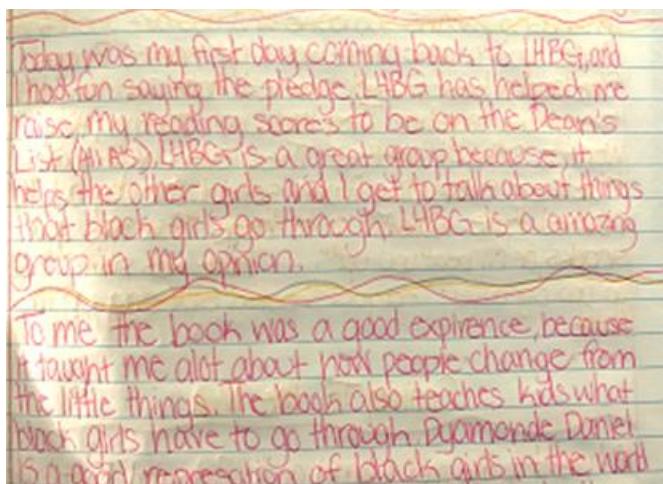 Today was my first day coming back to L4BG, and
I had fun saying the pledge. L4BG has helped me
raise my reading scores to be on the Dean's
List (All A's). L4BG is a great group because, it
helps the other girls and I get to talk about things
that black girls go through. L4BG is a amazing
group in my opinion.
To me the book was a good expirence, because
it taught me alot about how people change from
the little things. The book also teaches kids what
black girls have to go through. Dyamonde Daniel
is a good represation of black girls in the world